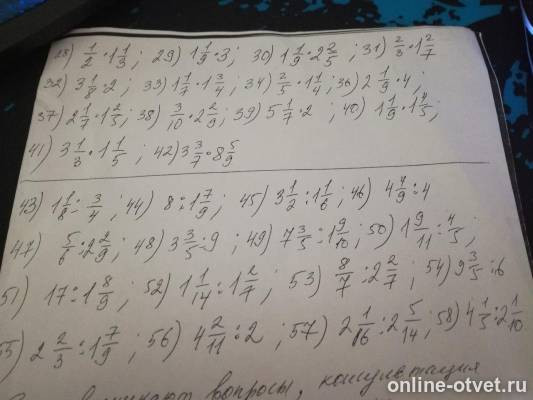 28) 1/2 · 1 1/3 ; 29) 1 1/9 · 3 ; 30) 1 1/9 · 2 2/5 ; 31) 2/3 · 1 2/7
32) 3 1/8 · 2 ; 33) 1 1/7 · 1 3/4 ; 34) 2/5 · 1 1/4 ; 36) 2 1/9 · 4 ;
37) 2 1/7 · 1 2/5 ; 38) 3/10 · 2 2/9 ; 39) 5 1/7 · 2 ; 40) 1 1/9 · 1 4/5 ;
41) 3 1/3 · 1 1/5 ; 42) 3 3/7 · 8 5/9
43) 1 1/8 : 3/4 ; 44) 8 : 1 7/9 ; 45) 3 1/2 : 1 1/6 ; 46) 4 4/9 : 4
47) 5/6 : 2 2/9 ; 48) 3 3/5 : 9 ; 49) 7 3/5 : 1 9/10 ; 50) 1 9/11 : 4/5 ;
51) 17 : 1 8/9 ; 52) 1 1/14 : 1 2/7 ; 53) 8/7 : 2 2/7 ; 54) 9 3/5 : 6
55) 2 2/3 : 1 7/9 ; 56) 4 2/11 : 2 ; 57) 2 1/16 : 2 5/14 ; 58) 4 1/5 : 2 1/10
вопросы, консультация
online-otvet.ru